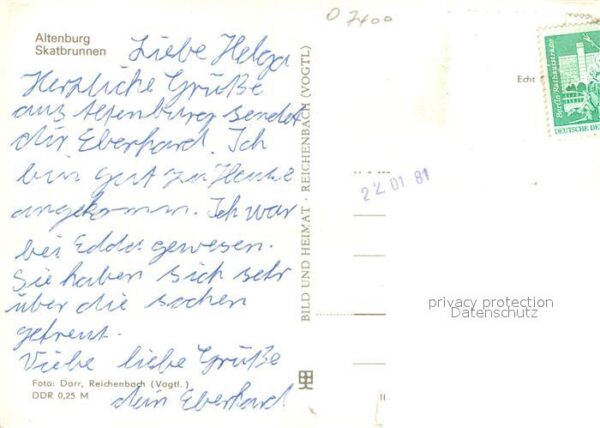 O 7400
Altenburg
Skatbrunnen
Liebe Helga
Herzliche Grüße
aus Altenburg sendet
dir Eberhard. Ich
bin gut zu Hause
angekomm. Ich war
bei Edda gewesen.
Sie haben sich sehr
über die sachen
gefreut.
Viebe liebe Grüße
dein Eberhard
Foto: Darr, Reichenbach (Vogtl.)
DDR 0,25 M
BILD UND HEIMAT · REICHENBACH (VOGTL)
22.01 81
Echt
Berlin, Rathausstrasse
DEUTSCHE DE
privacy protection
Datenschutz